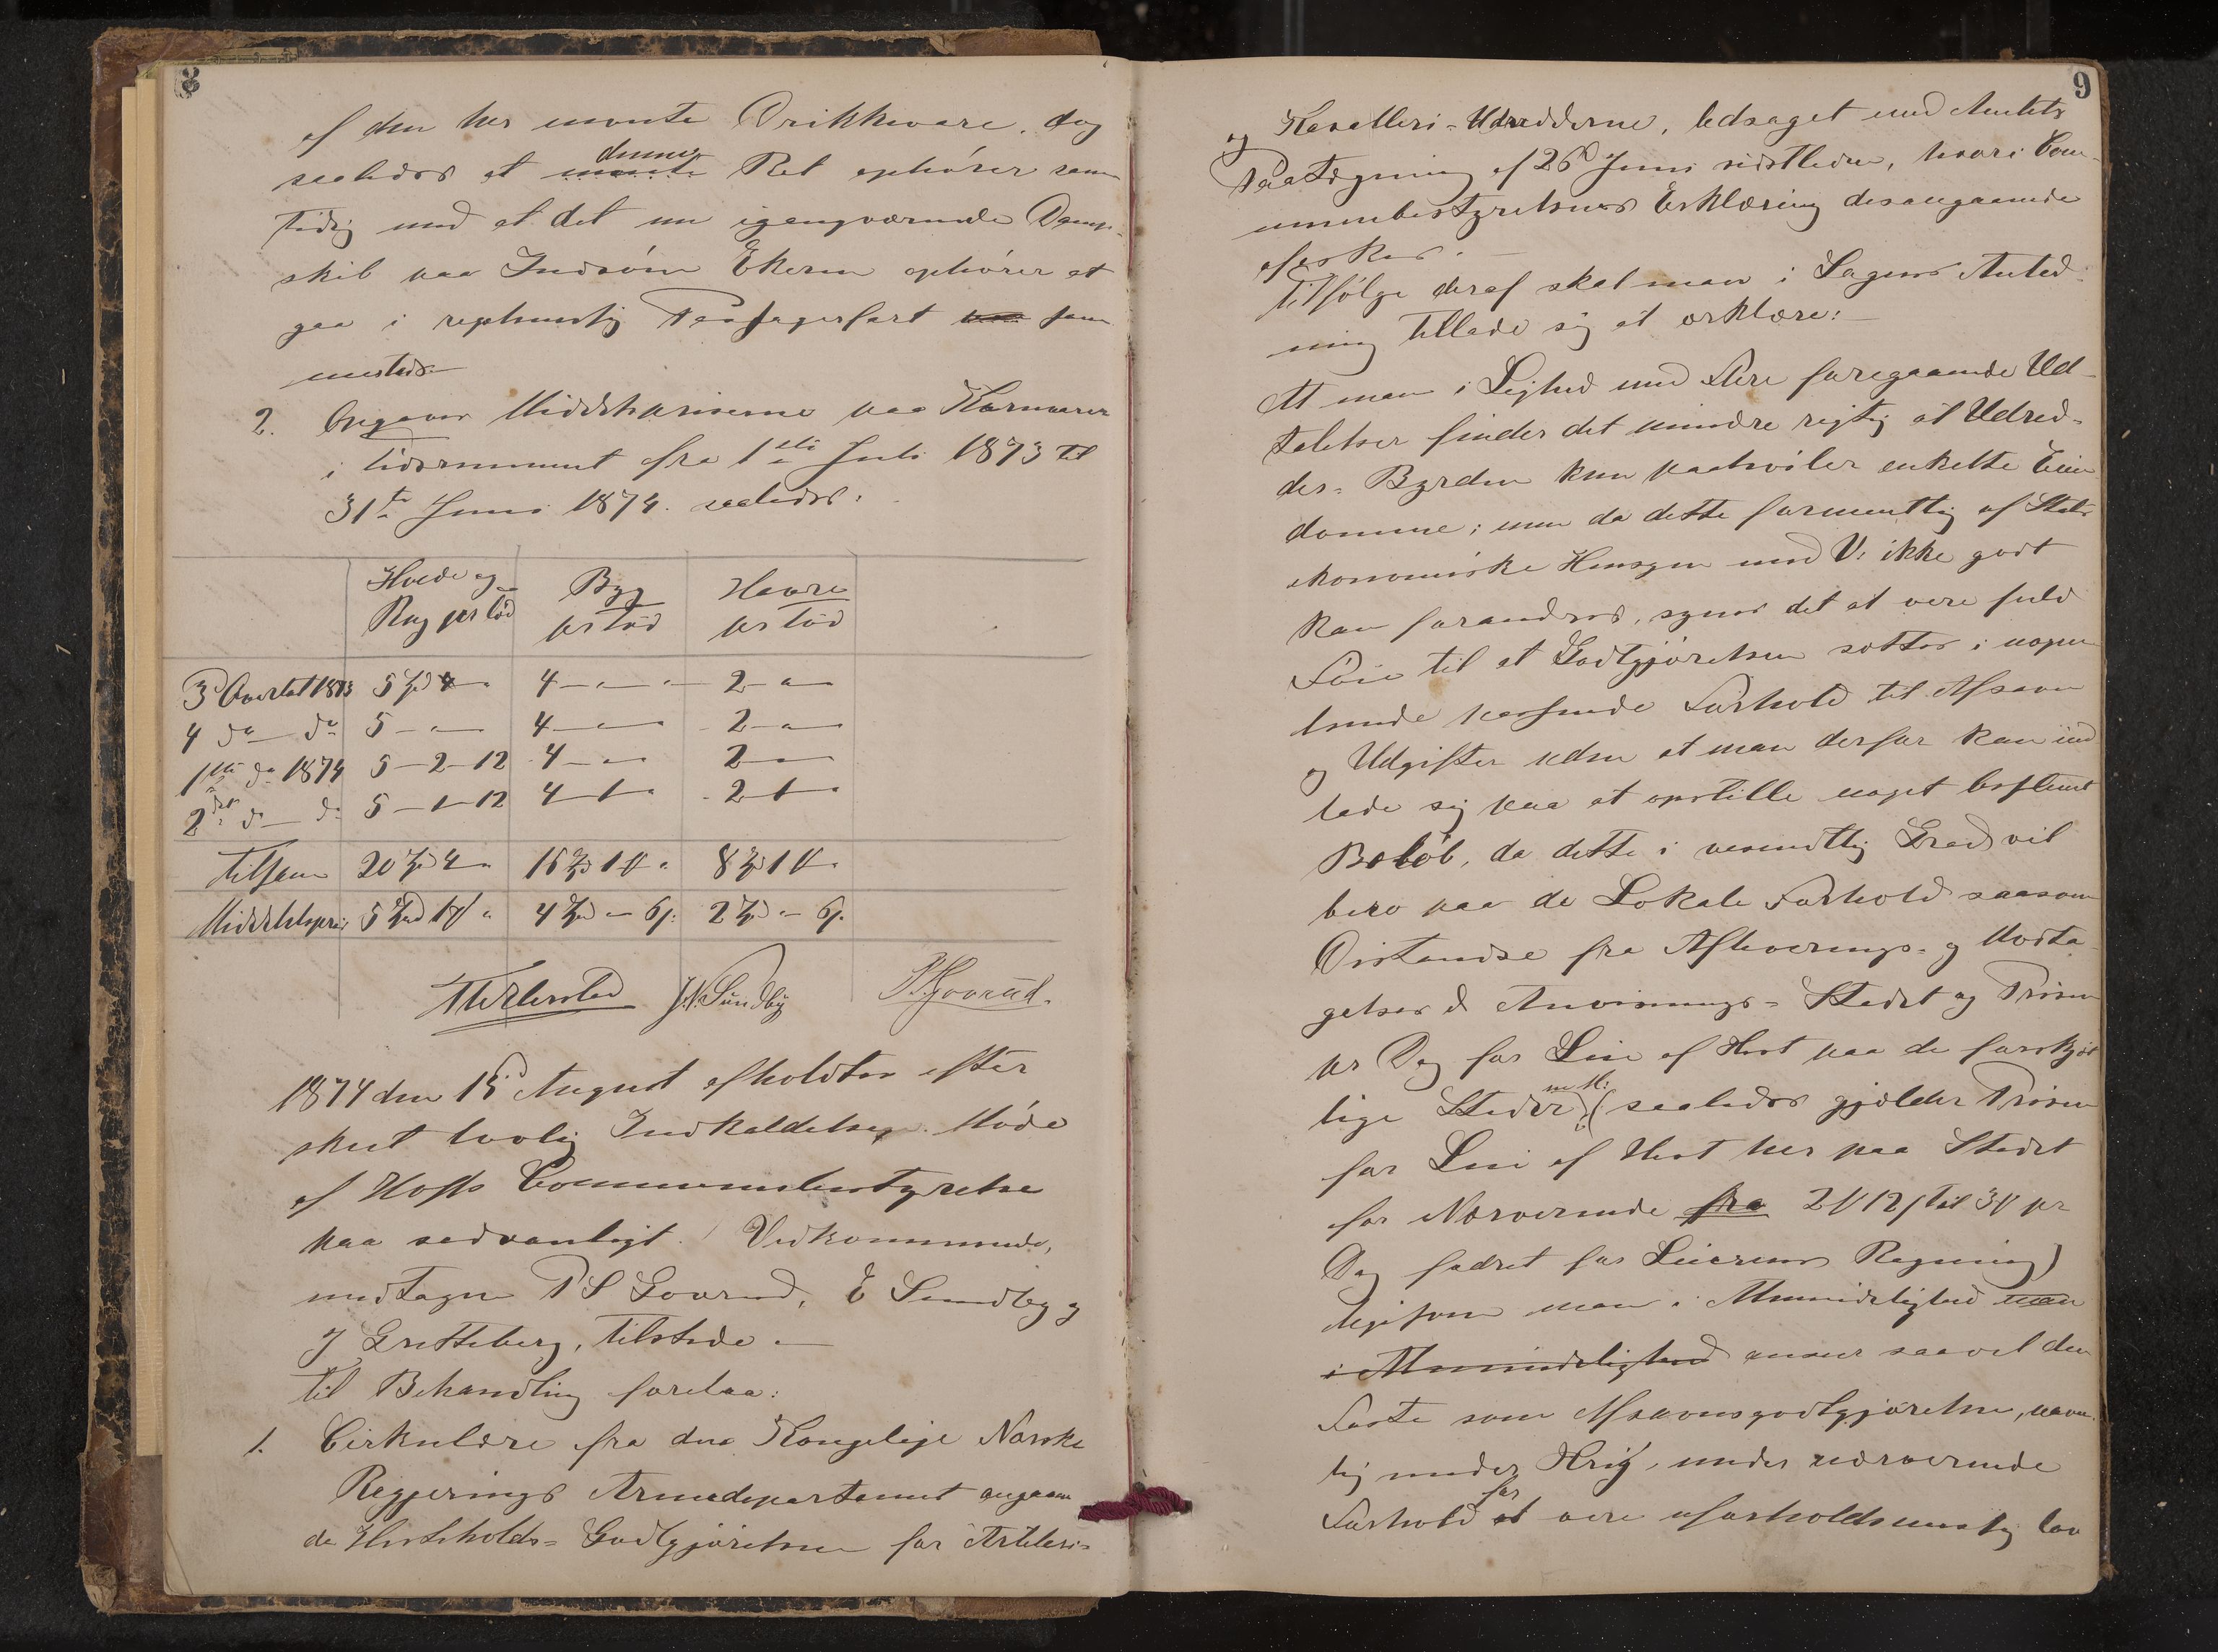 8
af den her nævnte Drikkevare, dog
saaledes at denne nævnte Ret ophører sam
tidig med at det nu igangværende Damp-
skib paa Indsøen Ekern ophører at
gaa i regelmæssig Passagerfart som
mestads.
2. Opgaver Middelpriserne paa Kornvarer
i Tidsrummet fra 1ste Juli 1873 til
31te Juni 1874. saaledes:
Hvede og Byg Havre
Rug pr Tød pr Tød pr Tød
3d Qvartal 1873 5 4 2
4 do do 5 4 2
1ste do 1874 5 - 2 - 12 4 2
2det do do 5 - 1 - 12 4 1 2 1
Tilsam 20 4 16 1 8 1
Middelspris 5 1 4 6 2 6
J.N. Sundby P.S. Goverud
1874 den 15d August afholdtes efter
skeet lovlig Indkaldelse Møde
af Hoffs Communebestyrelse
paa sædvanligt. Vedkommende,
undtagen P S Goverud, E Sundby og
J Gretteberg, tilstede.
Til Behandling forelaa:
1. Cirkulære fra den Kongelige Norske
Regjerings Armedepartement angaaen
de Hesteholds- Godtgjørelsen for Artileri-
9
og Kavalleri- Udrederne, ledsaget med Amtets
Paategning af 26d Juni sidstleden, hvori Com-
munebestyrelsens Erklæring desangaaende
æskes.
Tilfølge deraf skal man i Sagens Anled-
ning tillade sig at erklære:
At man i Lighed med flere foregaaende Ud-
talelser finder det mindre rigtig at Udred-
der- Byrden kun paahviler enkelte Eien
domme; men da dette formentlig af Stats
økonomiske Hensyn med V: ikke godt
kan forandres, synes det at være fuld
Føie til at Godtgjørelsen sættes i nogen
lunde passende Forhold til Afsavn
og Udgifter uden at man derfor kan ind
lade sig paa at opstille noget bestemt
Beløb, da dette i væsentlig Grad vil
bero paa de Lokale Forhold saasom
Distandse fra Afleverings- og Modta
gelses & Anvisnings- Stedet og Prisen
pr Dag for Leie af Hest paa de forskjæl
lige Steder m M: (saaledes gjælder Prisen
for Leie af Hest her paa Stedet
for Nærværende fra 2 12 til 3 pr
Dag fodret for Leierens Regning)
ligesom man i Almindelighed man
i Almindelighed anser saavel den
Faste som Afsavnsgodtgjørelse, navn-
lig under Krig, under nærværende
Forhold for at være uforholdsmæssig lav